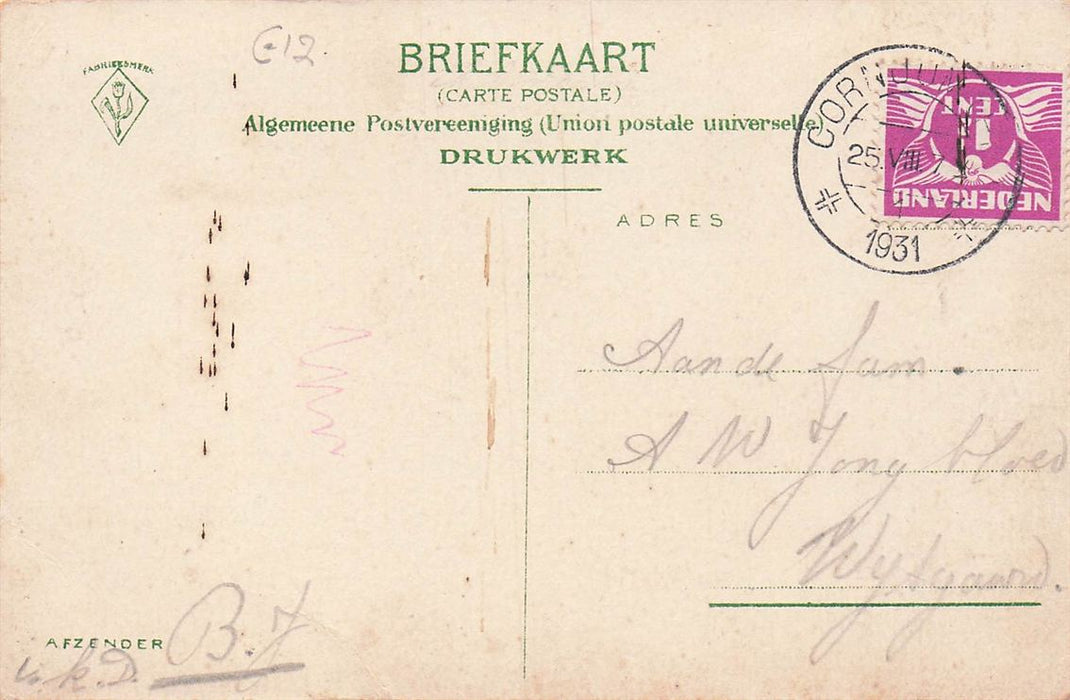 FABRIEKSMERK
C-12
BRIEFKAART
(CARTE POSTALE)
Algemeene Postvereeniging (Union postale universelle)
DRUKWERK
CORNJUM
25.VIII.
1931
1 CENT
NEDERLAND
ADRES
Aan de fam.
A W Jongbloed
Wytgaard.
AFZENDER
B. J
v. k. D.